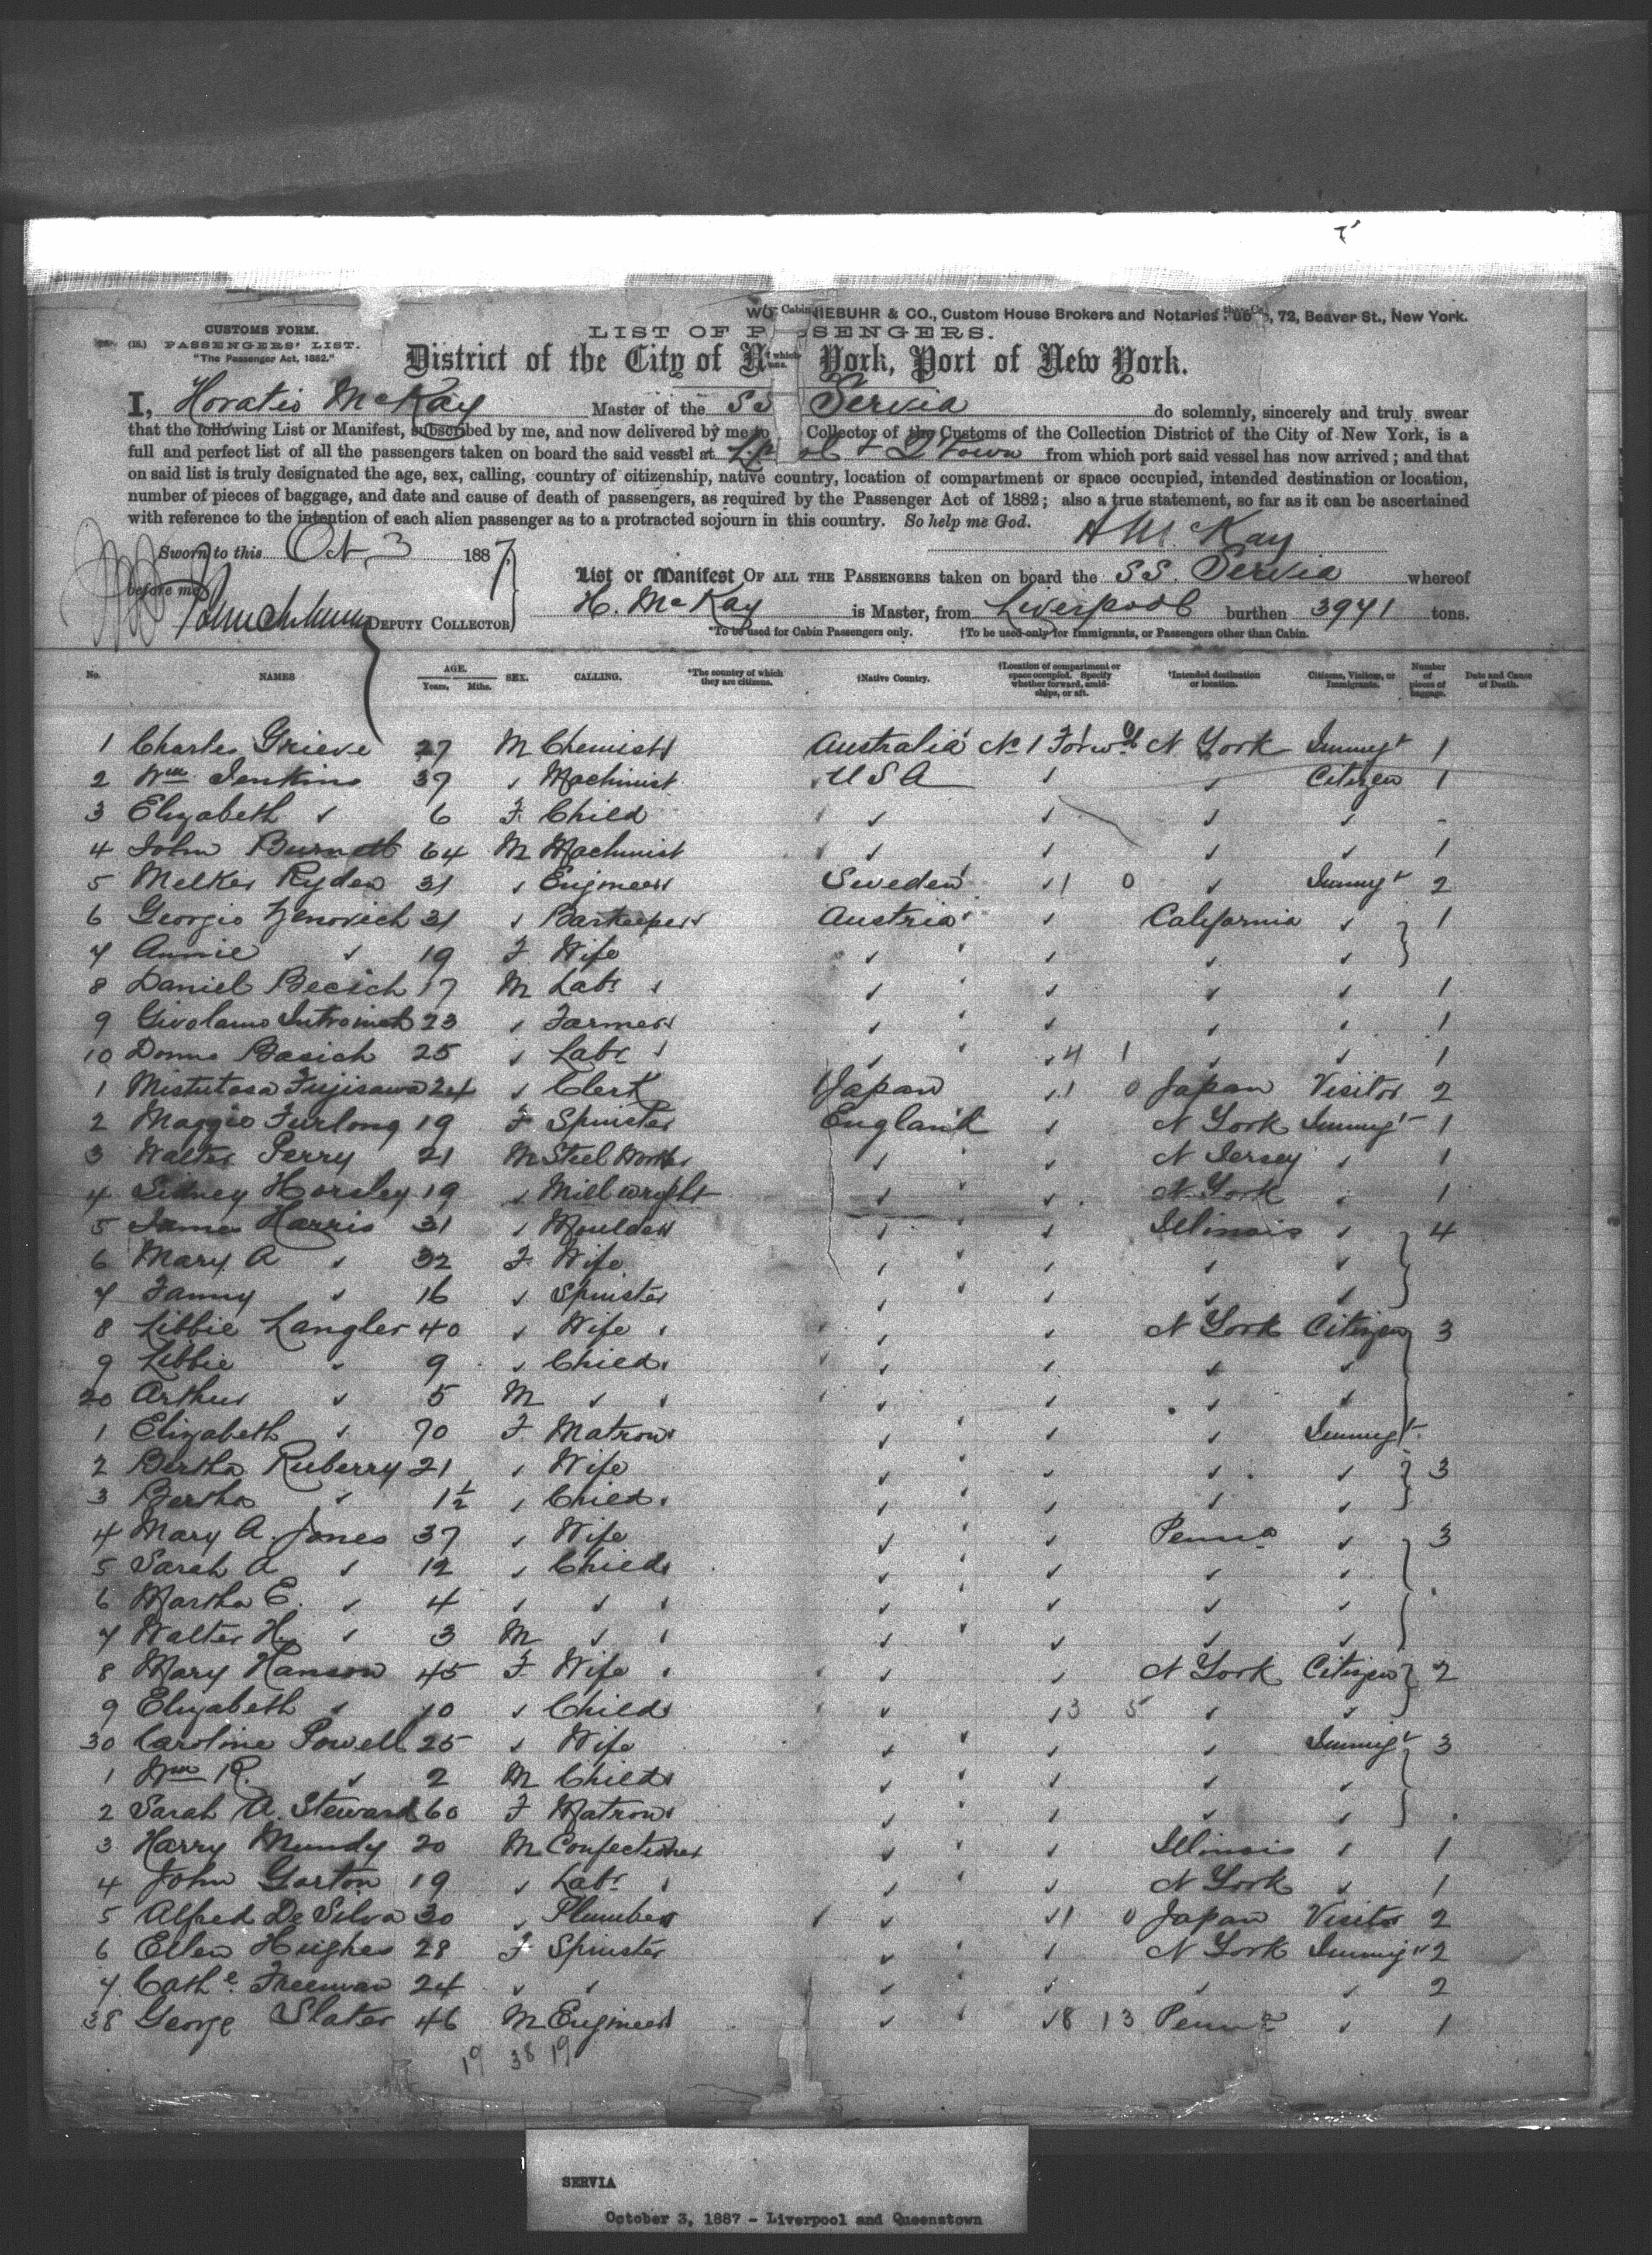 WO NIEBUHR & CO., Custom House Brokers and Notaries, 72, Beaver St., New York.
CUSTOMS FORM.
LIST OF P SENGERS.
(18.) PASSENGERS' LIST.
"The Passenger Act, 1882."
District of the City of N York, Port of New York.
I, Horatio McKay Master of the SS Servia do solemnly, sincerely and truly swear
that the following List or Manifest, subscribed by me, and now delivered by me to Collector of the Customs of the Collection District of the City of New York, is a
full and perfect list of all the passengers taken on board the said vessel at L'pool + Qtown from which port said vessel has now arrived; and that
on said list is truly designated the age, sex, calling, country of citizenship, native country, location of compartment or space occupied, intended destination or location,
number of pieces of baggage, and date and cause of death of passengers, as required by the Passenger Act of 1882; also a true statement, so far as it can be ascertained
with reference to the intention of each alien passenger as to a protracted sojourn in this country. So help me God.
H McKay
Sworn to this Oct 3 1887.
before me
DEPUTY COLLECTOR
List or Manifest OF ALL THE PASSENGERS taken on board the SS. Servia whereof
H. McKay is Master, from Liverpool burthen 3941 tons.
*To be used for Cabin Passengers only. †To be used only for Immigrants, or Passengers other than Cabin.
No. NAMES AGE. Years, Mths. SEX. CALLING. *The country of which they are citizens. †Native Country. †Location of compartment or space occupied. Specify whether forward, amidships, or aft. †Intended destination or location. Citizens, Visitors, or Immigrants. Number of pieces of baggage. Date and Cause of Death.
1 Charles Grieve 27 M Chemist Australia No 1 Forwd N York Immigt 1
2 Wm Jenkins 37 " Machinist USA " " Citizen 1
3 Elizabeth " 6 F Child " " " " -
4 John Burnett 64 M Machinist " " " " 1
5 Melker Ryden 31 " Engineer Sweden " 1 0 " Immigt 2
6 Georgio Zenovich 31 " Barkeeper Austria " California " 1
7 Annie " 19 F Wife " " " "
8 Daniel Becich 17 M Labr " " " " 1
9 Givolamo 23 " Farmer " " " " 1
10 Donno Basich 25 " Labr " " 4 1 " " 1
1 Mistutasa Fujisawa 24 " Clerk Japan " 1 0 Japan Visitor 2
2 Maggie Furlong 19 F Spinster England " N York Immigt 1
3 Walter Perry 21 M Steel Worker " " N Jersey " 1
4 Sidney Horsley 19 " Millwright " " N York " 1
5 James Harris 31 " Moulder " " Illinois " 4
6 Mary A " 32 F Wife " " " "
7 Fanny " 16 " Spinster " " " "
8 Libbie Langler 40 " Wife " " N York Citizen 3
9 Libbie " 9 " Child " " " "
20 Arthur " 5 M " " " " "
1 Elizabeth " 70 F Matron " " " Immigt
2 Bertha Ruberry 21 " Wife " " " " 3
3 Bertha " 1½ " Child " " " "
4 Mary A. Jones 37 " Wife " " Penna " 3
5 Sarah A " 12 " Child " " " "
6 Martha E. " 4 " " " " " "
7 Walter H. " 3 M " " " " "
8 Mary Hanson 45 F Wife " " N York Citizen 2
9 Elizabeth " 10 " Child " " 3 5 " "
30 Caroline Powell 25 " Wife " " " Immigt 3
1 Wm R. " 2 M Child " " " "
2 Sarah A. Steward 60 F Matron " " " "
3 Harry Mundy 20 M Confectioner " " Illinois " 1
4 John Garton 19 " Labr " " N York " 1
5 Alfred De Silva 30 " Plumber " " 1 0 Japan Visitor 2
6 Ellen Hughes 28 F Spinster " " N York Immigt 2
7 Cathe Freeman 24 " " " " " " 2
38 George Slater 46 M Engineer " " 8 13 Penna " 1
19 38 19
SERVIA
October 3, 1887 - Liverpool and Queenstown